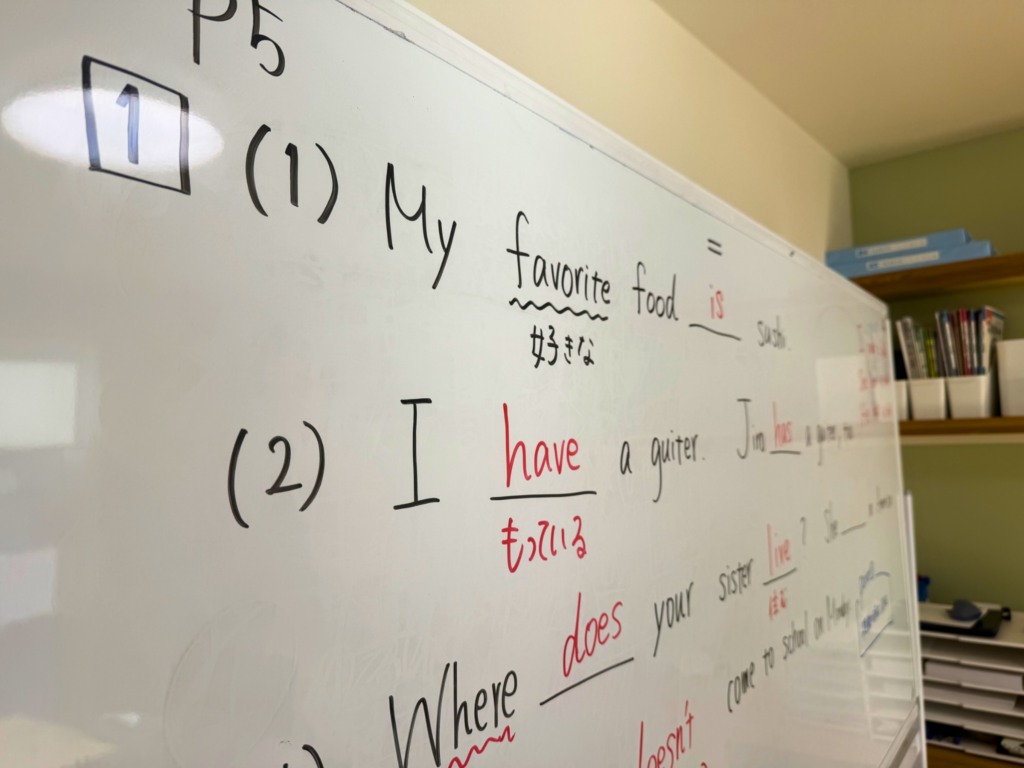 P5
1 (1) My favorite food is sushi.
好きな
=
(2) I have a guiter. Jim has a
もっている
Where does your sister live? She
住む
doesn't come to school on